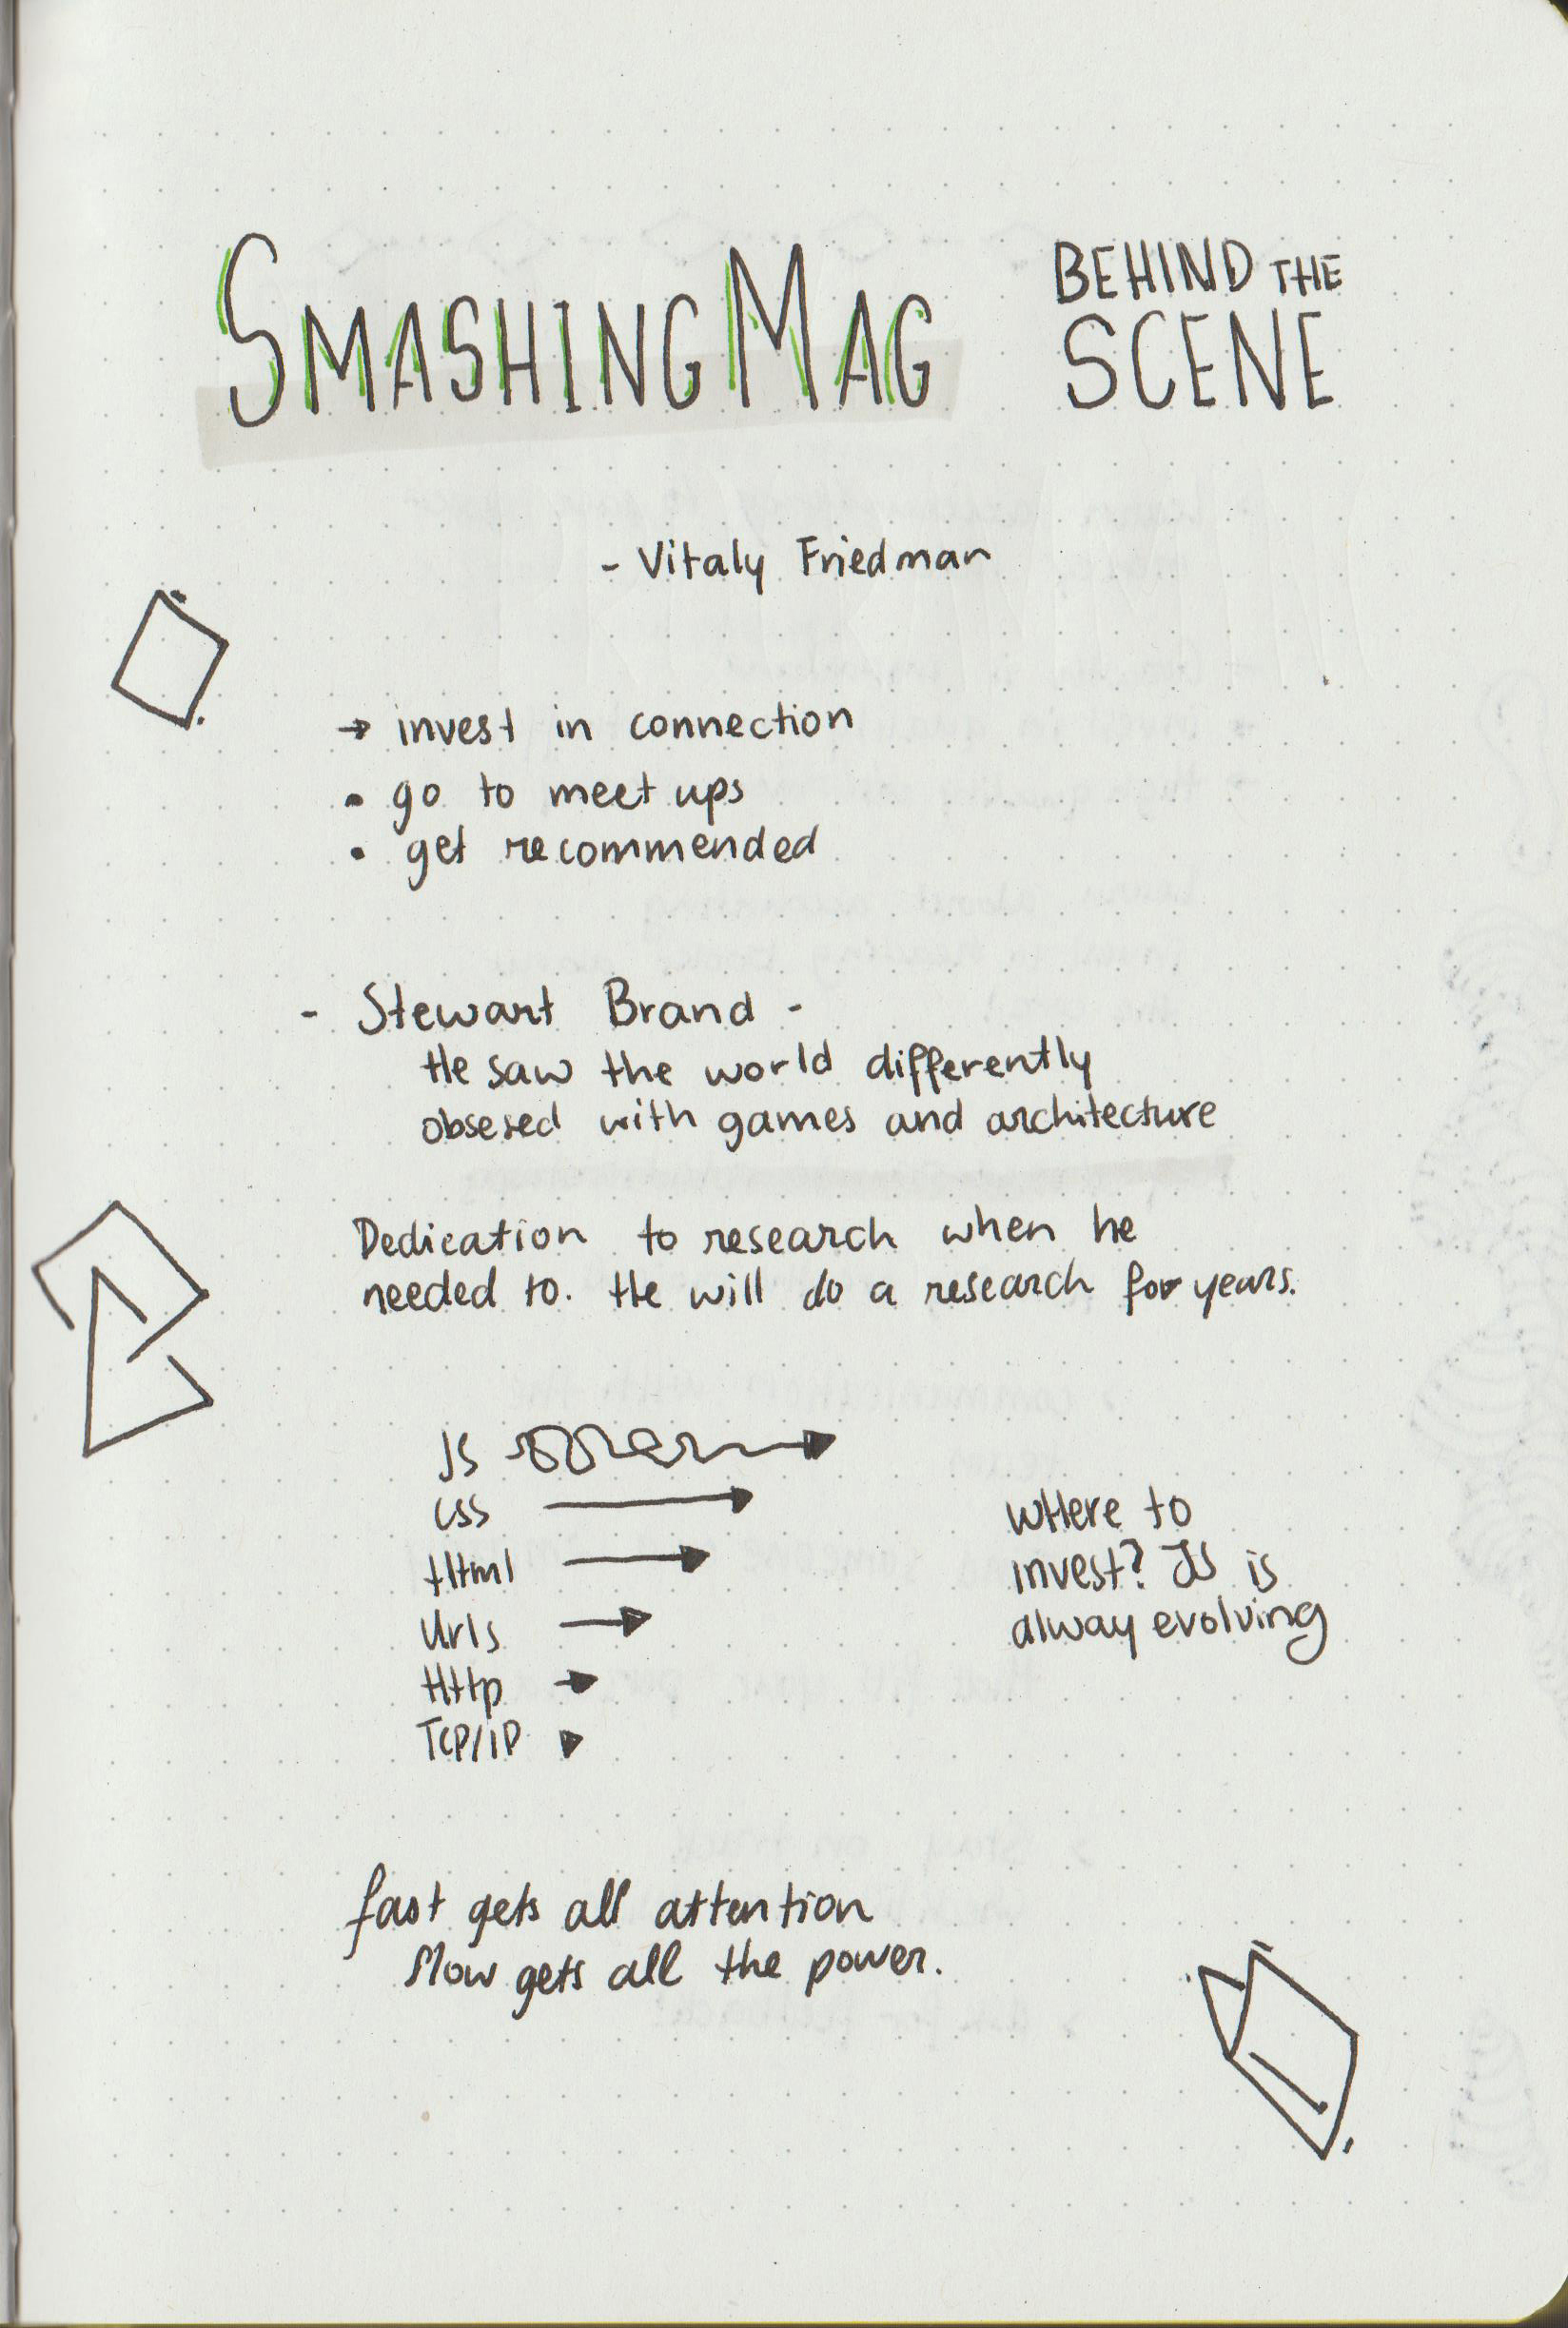 SMASHINGMAG
BEHIND THE
SCENE
- Vitaly Friedman
→ invest in connection
• go to meet ups
• get recommended
- Stewart Brand -
He saw the world differently
obsesed with games and architecture
Dedication to research when he
needed to. He will do a research for years.
JS
CSS
Html
Urls
Http
TCP/IP
wHere to
invest? JS is
alway evolving
fast gets all attention
slow gets all the power.